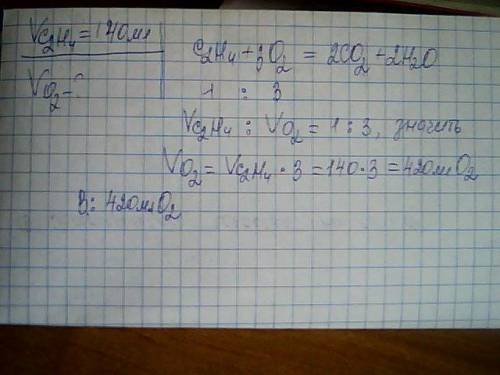 V C₂H₄ = 140 мл
V O₂ - ?
C₂H₄ + 3O₂ = 2CO₂ + 2H₂O
1 : 3
V C₂H₄ : V O₂ = 1 : 3, значить
V O₂ = V C₂H₄ · 3 = 140 · 3 = 420 мл O₂
В: 420 мл O₂